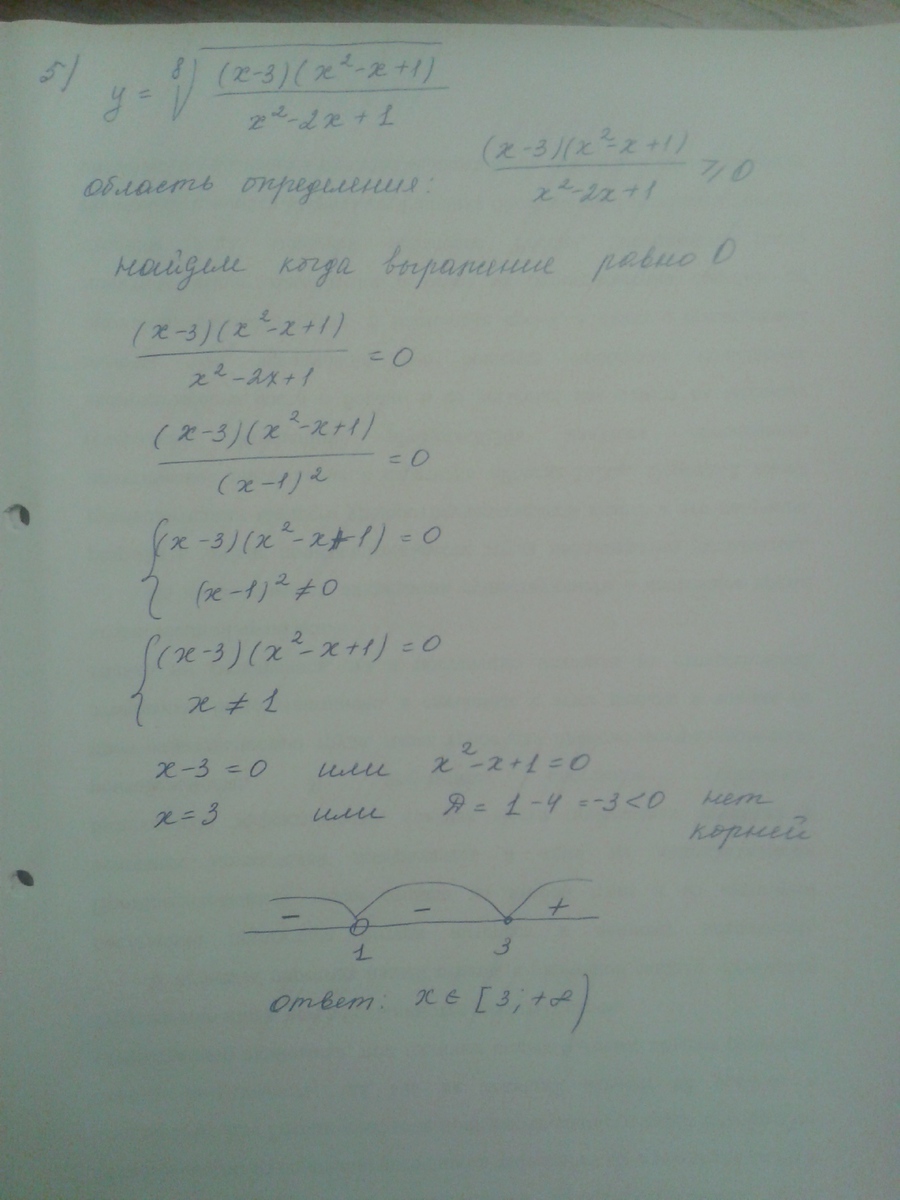 5) y = ⁸√((x-3)(x²-x+1) / (x²-2x+1))
область определения: (x-3)(x²-x+1) / (x²-2x+1) ⩾ 0
найдем когда выражение равно 0
(x-3)(x²-x+1) / (x²-2x+1) = 0
(x-3)(x²-x+1) / (x-1)² = 0
{ (x-3)(x²-x+1) = 0
(x-1)² ≠ 0
{ (x-3)(x²-x+1) = 0
x ≠ 1
x-3 = 0 или x²-x+1=0
x=3 или Д = 1-4 =-3<0 нет
корней
- - +
1 3
ответ: x ∈ [3; +∞)